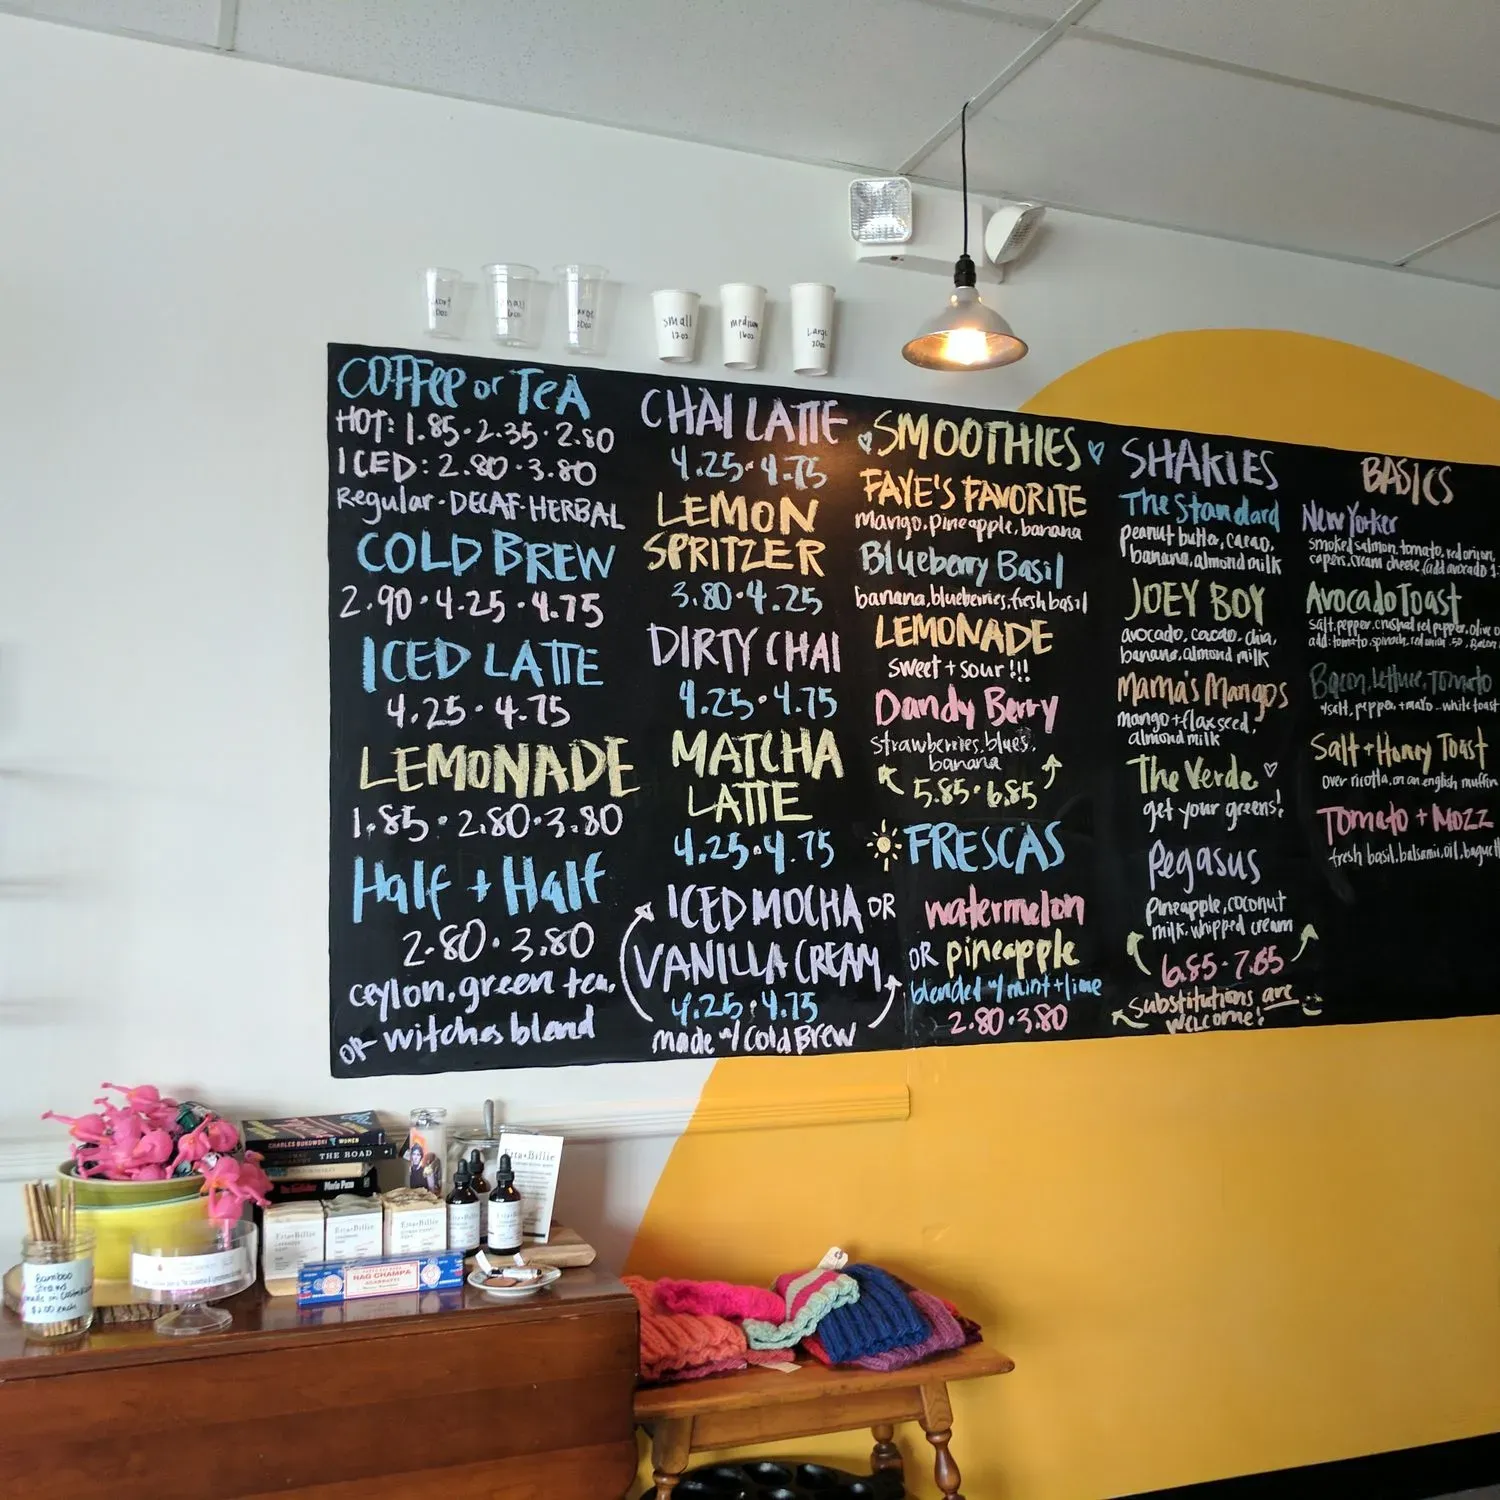 small
12oz
medium
16oz
Large
20oz
COFFEE or TEA
HOT: 1.85 · 2.35 · 2.80
ICED: 2.80 · 3.80
Regular · DECAF · HERBAL
COLD BREW
2.90 · 4.25 · 4.75
ICED LATTE
4.25 · 4.75
LEMONADE
1.85 · 2.80 · 3.80
Half + Half
2.80 · 3.80
ceylon, green tea,
or witches blend
CHAI LATTE
4.25 · 4.75
LEMON
SPRITZER
3.80 · 4.25
DIRTY CHAI
4.25 · 4.75
MATCHA
LATTE
4.25 · 4.75
ICED MOCHA OR
VANILLA CREAM
4.25 · 4.75
made w/ Cold BREW
SMOOTHIES
FAYE'S FAVORITE
mango, pineapple, banana
Blueberry Basil
banana, blueberries, fresh basil
LEMONADE
sweet + sour !!!
Dandy Berry
strawberries, blues,
banana
5.85 · 6.85
FRESCAS
watermelon
OR pineapple
blended w/ mint + lime
2.80 · 3.80
SHAKIES
The Standard
peanut butter, cacao,
banana, almond milk
JOEY BOY
avocado, cacao, chia,
banana, almond milk
Mama's Mangos
mango + flaxseed,
almond milk
The Verde
get your greens!
Pegasus
pineapple, coconut
milk, whipped cream
6.85 · 7.85
Substitutions are
WELCOME!
BASICS
New Yorker
smoked salmon, tomato, red onion,
capers, cream cheese, (add avocado 1.
AVOCADO TOAST
salt, pepper, crushed red pepper, olive o
add: tomato, spinach, red onion .50, Bacon
Bacon, lettuce, Tomato
salt, pepper, + mayo - white toast
Salt + Honey Toast
over ricotta, on an english muffin
Tomato + Mozz
fresh basil, balsamic, oil, baguett
CHARLES BUKOWSKI WOMEN
THE ROAD
Mario Puzo
Etta + Billie
Etta + Billie
Etta + Billie
Etta + Billie
NAG CHAMPA
Bamboo
Straws
$2.00 each